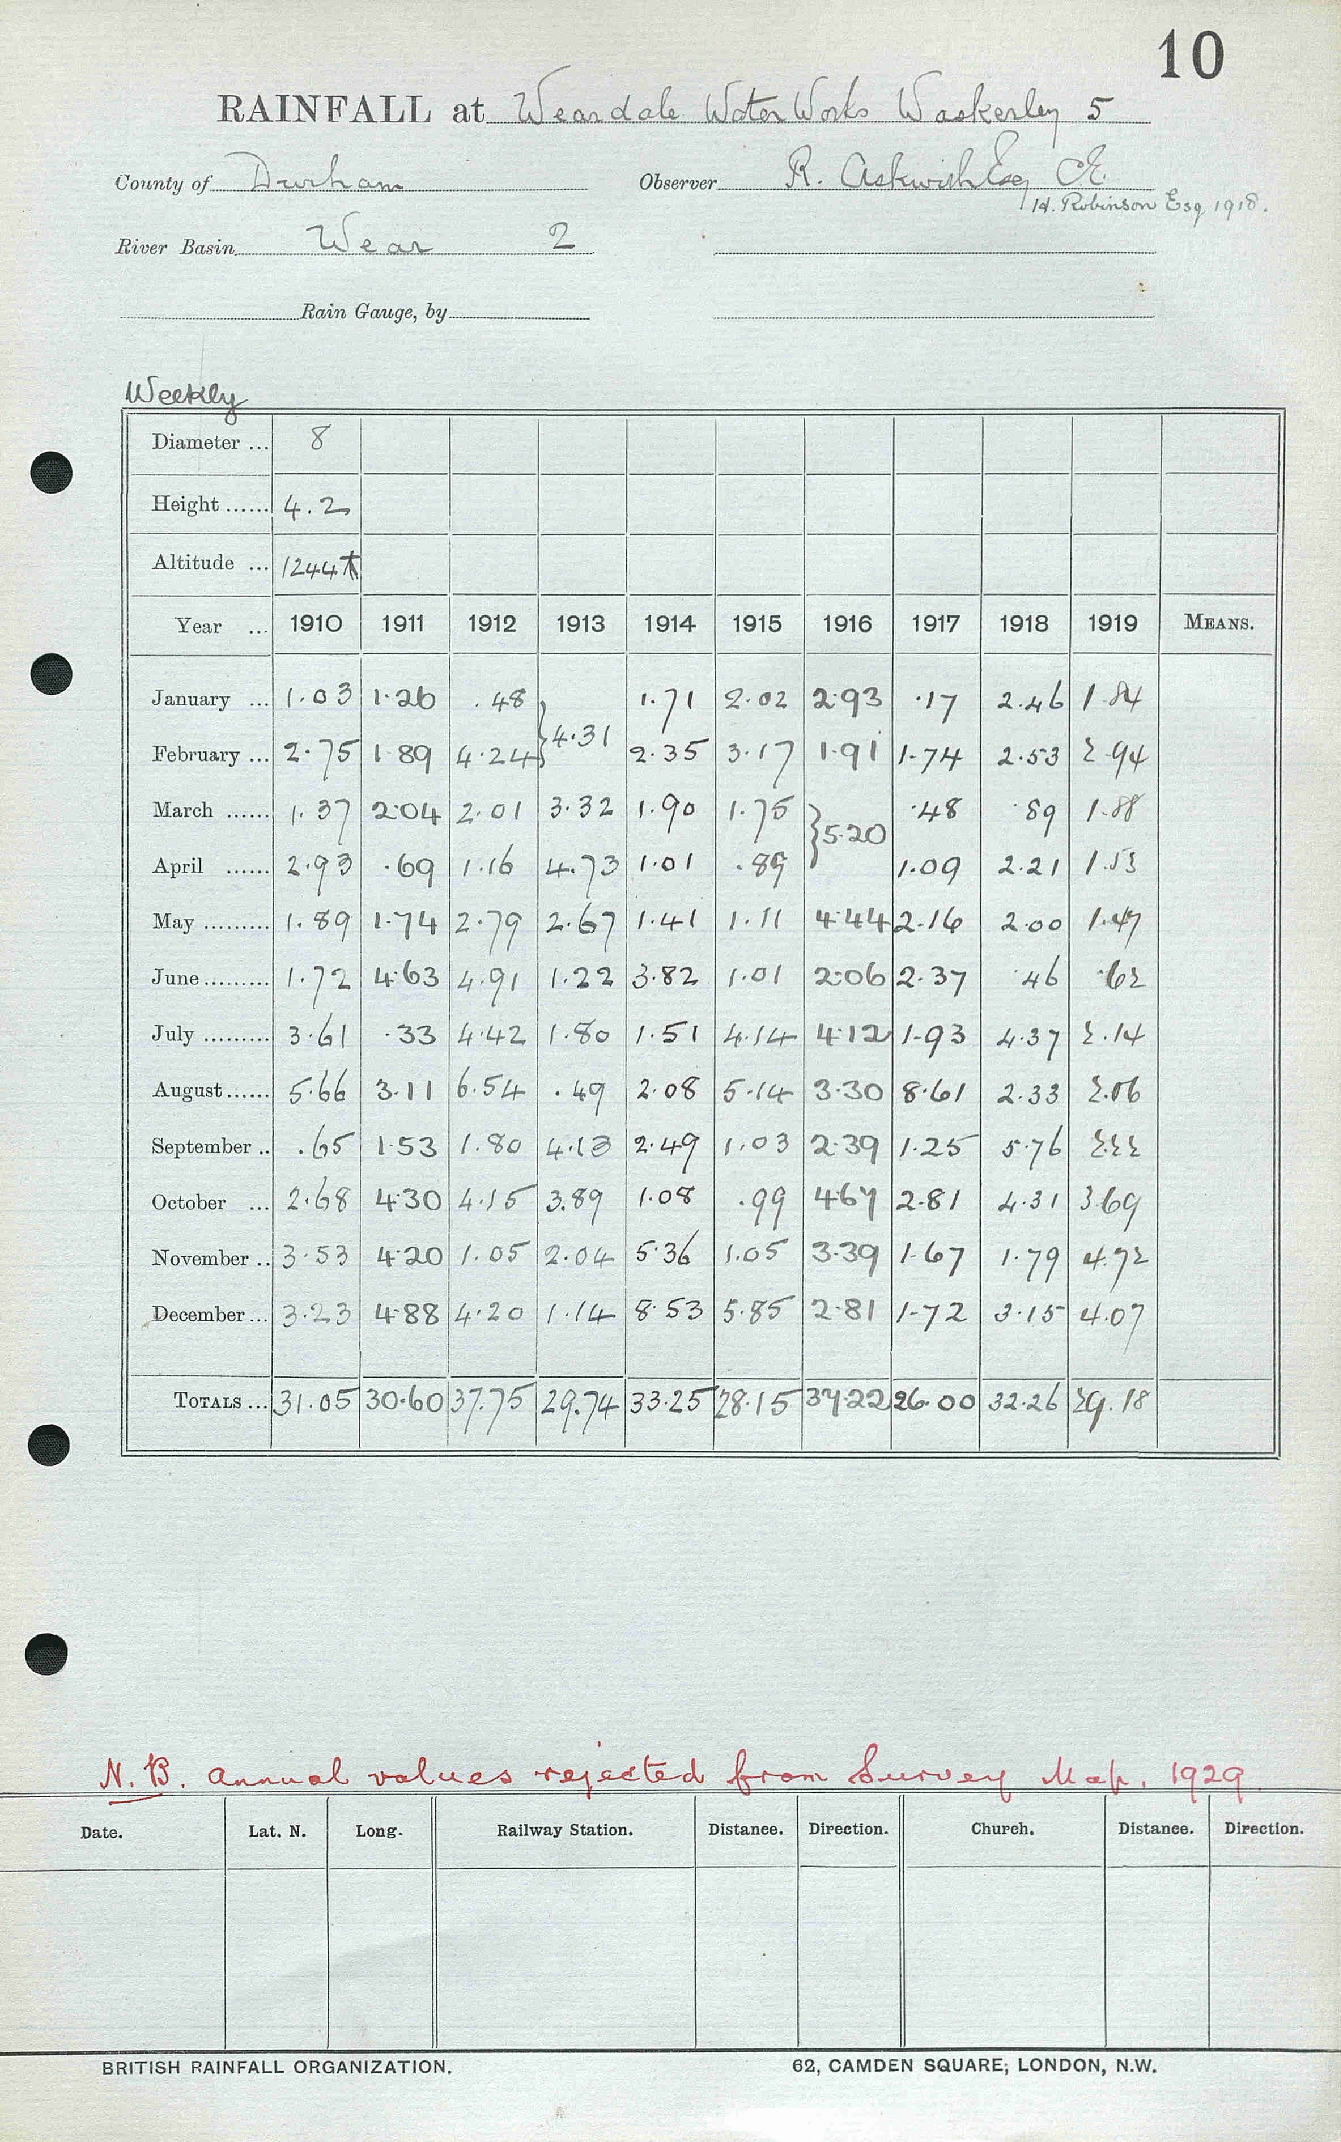 10
RAINFALL at Weardale Water Works Waskerley 5
County of Durham Observer R. Askwith Esq CE.
H. Robinson Esq 1918.
River Basin Wear 2
Rain Gauge, by
Weekly
Diameter ... 8
Height ...... 4.2
Altitude ... 1244
Year ... 1910 1911 1912 1913 1914 1915 1916 1917 1918 1919 MEANS.
January ... 1.03 1.26 .48 } 1.71 2.02 2.93 .17 2.46 1.84
4.31
February ... 2.75 1.89 4.24 2.35 3.17 1.91 1.74 2.53 2.94
March ...... 1.37 2.04 2.01 3.32 1.90 1.75 } .48 .89 1.88
5.20
April ...... 2.93 .69 1.16 4.73 1.01 .89 1.09 2.21 1.53
May ......... 1.89 1.74 2.79 2.67 1.41 1.11 4.44 2.16 2.00 1.47
June ......... 1.72 4.63 4.91 1.22 3.82 1.01 2.06 2.37 .46 .62
July ......... 3.61 .33 4.42 1.80 1.51 4.14 4.12 1.93 4.37 2.14
August ...... 5.66 3.11 6.54 .49 2.08 5.14 3.30 8.61 2.33 2.06
September .. .65 1.53 1.80 4.13 2.49 1.03 2.39 1.25 5.76 2.22
October ... 2.68 4.30 4.15 3.89 1.08 .99 4.67 2.81 4.31 3.69
November .. 3.53 4.20 1.05 2.04 5.36 1.05 3.39 1.67 1.79 4.72
December ... 3.23 4.88 4.20 1.14 8.53 5.85 2.81 1.72 3.15 4.07
TOTALS ... 31.05 30.60 37.75 29.74 33.25 28.15 37.22 26.00 32.26 29.18
N.B. Annual values rejected from Survey Map, 1929
Date. Lat. N. Long. Railway Station. Distance. Direction. Church. Distance. Direction.
BRITISH RAINFALL ORGANIZATION. 62, CAMDEN SQUARE, LONDON, N.W.